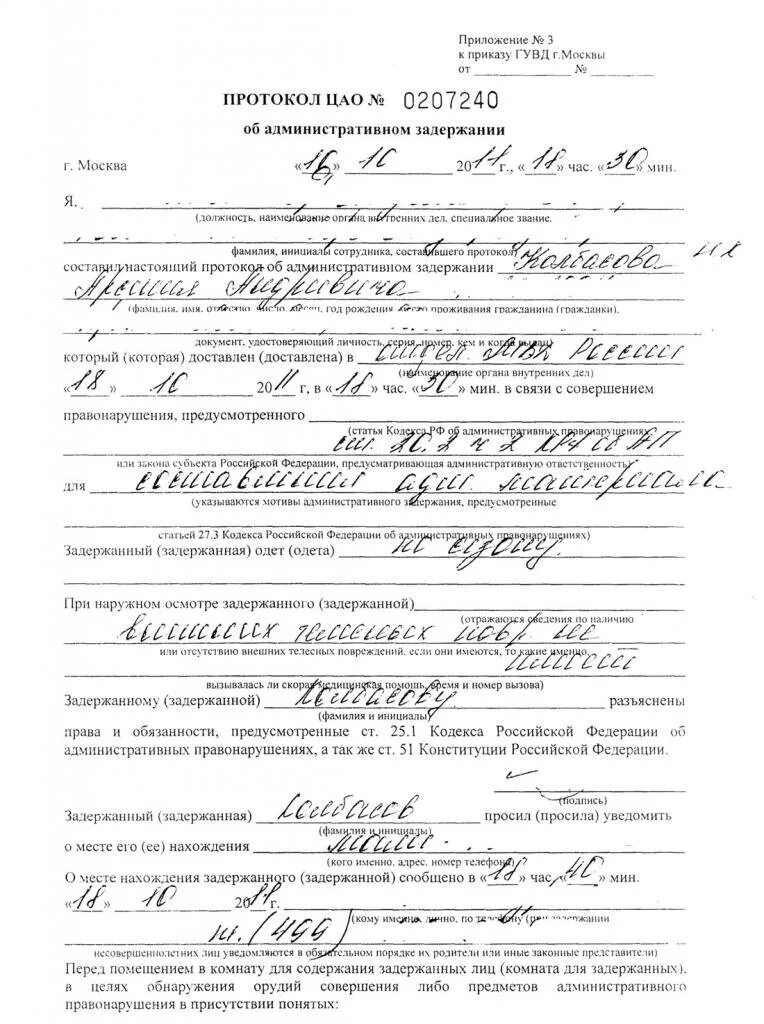 Приложение № 3
к приказу ГУВД г.Москвы
от №
ПРОТОКОЛ ЦАО № 0207240
об административном задержании
г. Москва « » 10 2011 г., « 18 » час. « 30 » мин.
Я,
(должность, наименование органа внутренних дел, специальное звание,
фамилия, инициалы сотрудника, составившего протокол)
составил настоящий протокол об административном задержании Колбасова
Андреевича
(фамилия, имя, отчество, число, месяц, год рождения, место проживания гражданина (гражданки),
документ, удостоверяющий личность, серия, номер, кем и когда выдан)
который (которая) доставлен (доставлена) в России
(наименование органа внутренних дел)
« 18 » 10 2011 г, в « 18 » час. « 30 » мин. в связи с совершением
правонарушения, предусмотренного
(статья Кодекса РФ об административных правонарушениях
ст. 20.2 ч 2 КРФ об АП
или закона субъекта Российской Федерации, предусматривающая административную ответственность)
для составления адм. материала
(указываются мотивы административного задержания, предусмотренные
статьей 27.3 Кодекса Российской Федерации об административных правонарушениях)
Задержанный (задержанная) одет (одета) по сезону.
При наружном осмотре задержанного (задержанной)
(отражаются сведения по наличию
внешних телесных повр. не
или отсутствию внешних телесных повреждений, если они имеются, то какие именно,
имеет
вызывалась ли скорая медицинская помощь, время и номер вызова)
Задержанному (задержанной) Колбасову разъяснены
(фамилия и инициалы)
права и обязанности, предусмотренные ст. 25.1 Кодекса Российской Федерации об
административных правонарушениях, а так же ст. 51 Конституции Российской Федерации.
(подпись)
Задержанный (задержанная) Колбасов просил (просила) уведомить
(фамилия и инициалы)
о месте его (ее) нахождения
(кого именно, адрес, номер телефона)
О месте нахождения задержанного (задержанной) сообщено в « 18 » час. « 40 » мин.
« 18 » 10 2011 г.
(кому именно, лично, по телефону (при задержании
(499)
несовершеннолетних лиц уведомляются в обязательном порядке их родители или иные законные представители)
Перед помещением в комнату для содержания задержанных лиц (комната для задержанных),
в целях обнаружения орудий совершения либо предметов административного
правонарушения в присутствии понятых: